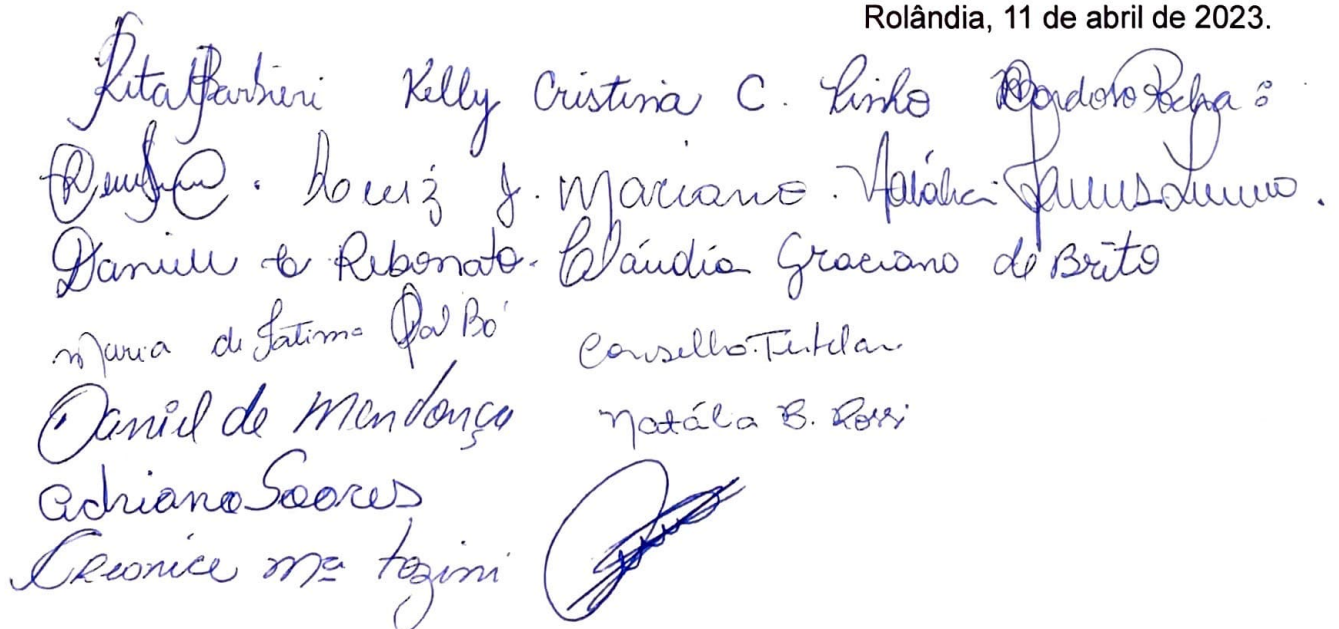 Rolândia, 11 de abril de 2023.
Rita Barbieri Kelly Cristina C. Pinho
Louriz J. Mariano. Natália
Daniele Rebonato. Cláudia Graciano de Brito
Maria de Fátima Dal Bó Conselho Tutelar
Daniel de Mendonça Natália B. Rossi
Adriano Soares
Cleonice Mª Tozini